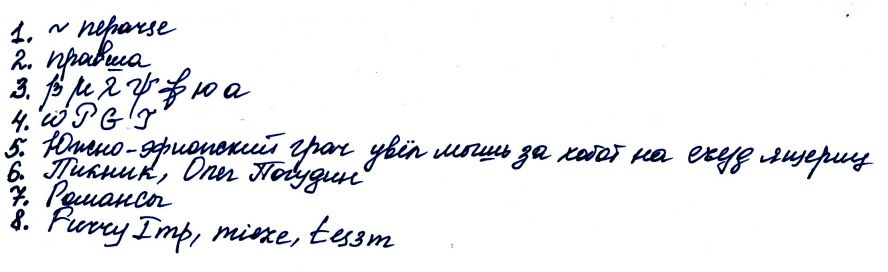 1. ~ перочзе
2. правша
3. β μ λ ψ ф ю а
4. ω P G J
5. Южно-эфиопский грач увёл мышь за хобот на съезд ящериц
6. Пикник, Олег Погудин
7. Романсы
8. Furry Imp, mioxe, teszm